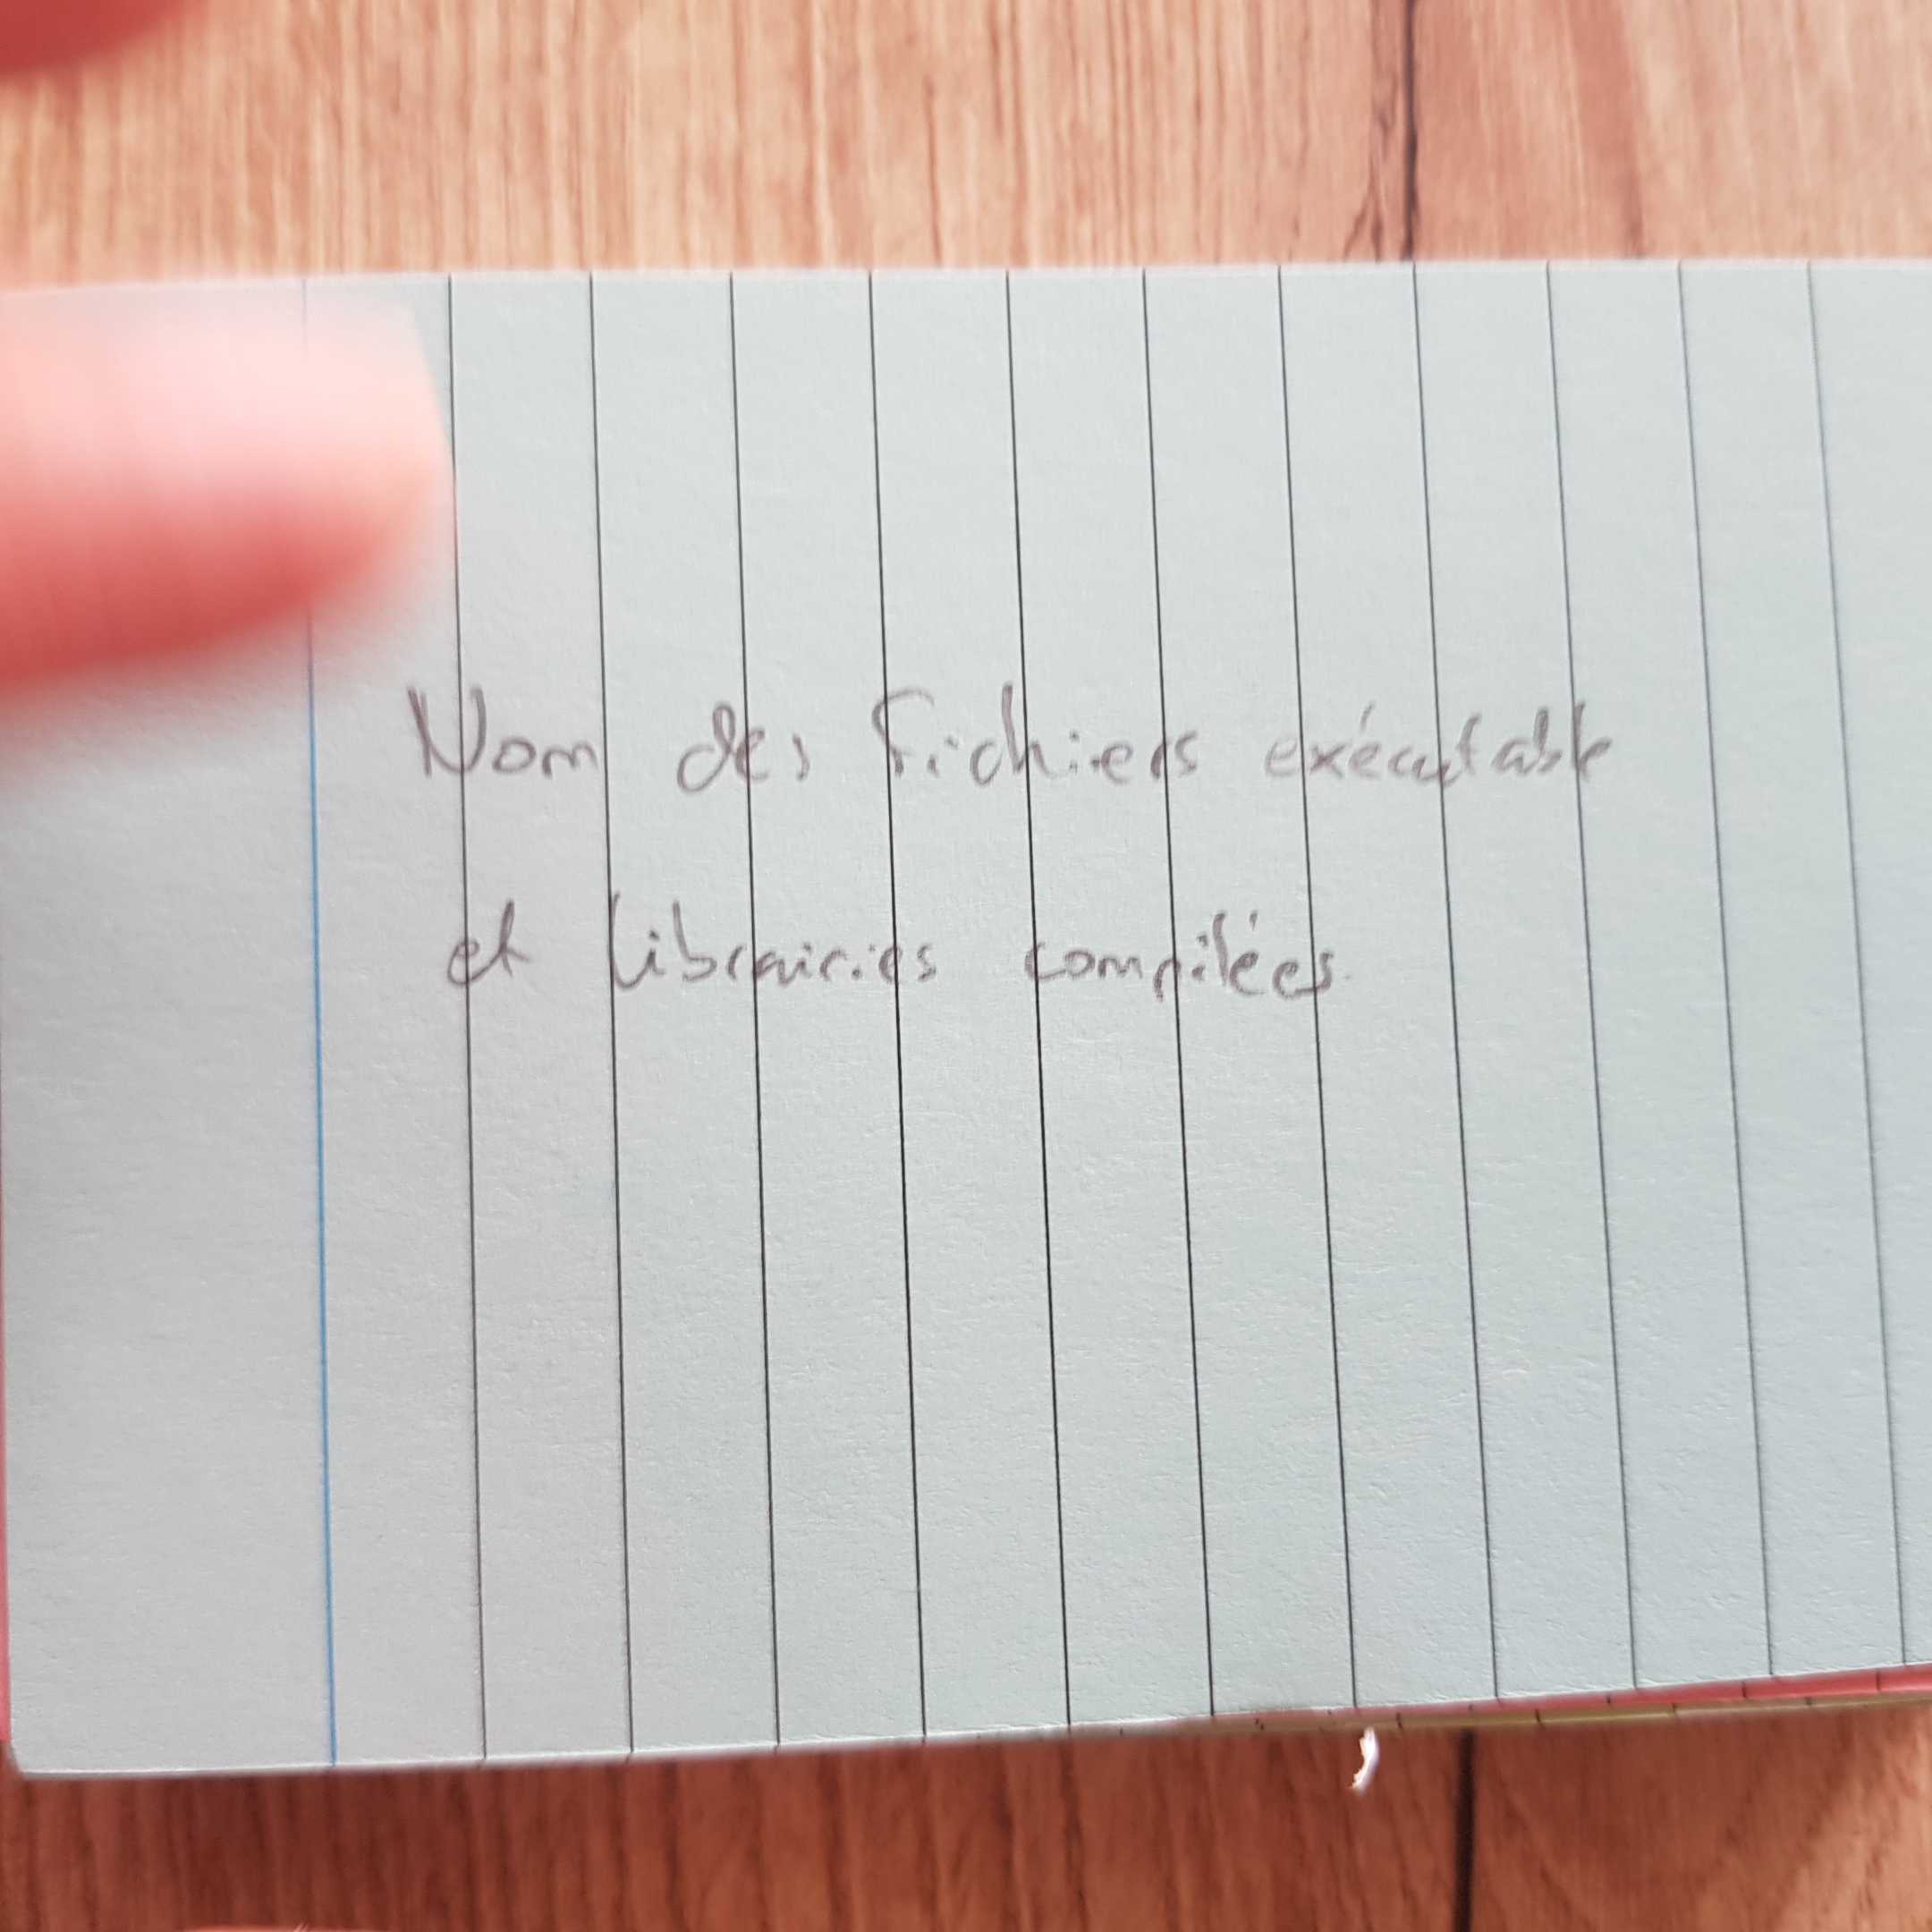 Nom des fichiers exécutable
et librairies compilées